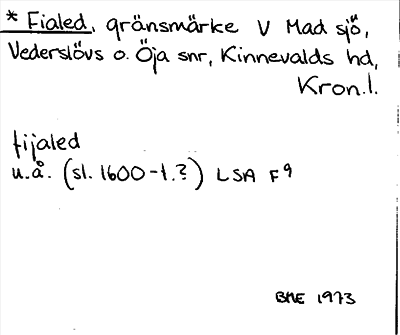 * Fialed, gränsmärke V Mad sjö,
Vederslövs o. Öja snr, Kinnevalds hd,
Kron.l.
fijaled
u.å. (sl. 1600-t.?) LSA F9
BME 1973